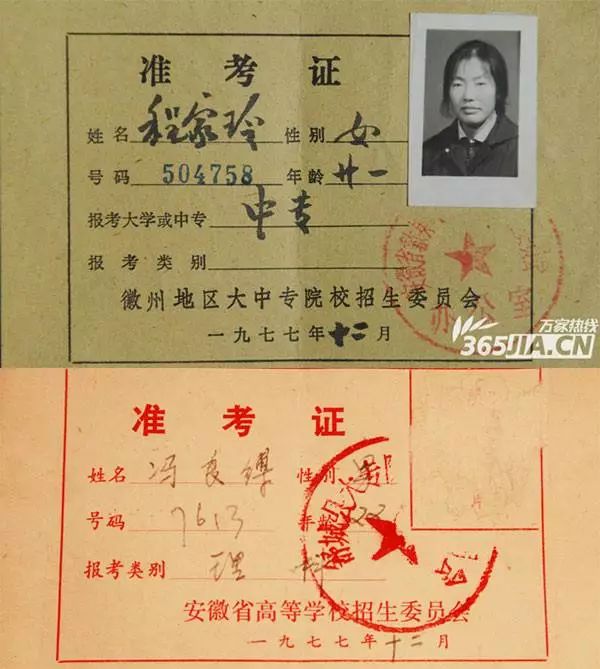 准考证
姓名 程家玲 性别 女
号码 504758 年龄 廿一
报考大学或中专 中专
报考类别
徽州地区大中专院校招生委员会
一九七七年十二月
办公室
万家热线
365JIA.CN
准考证
姓名 冯良 性别 男
号码 7613 年龄 22
报考类别 理科
安徽省高等学校招生委员会
一九七七年十二月
片